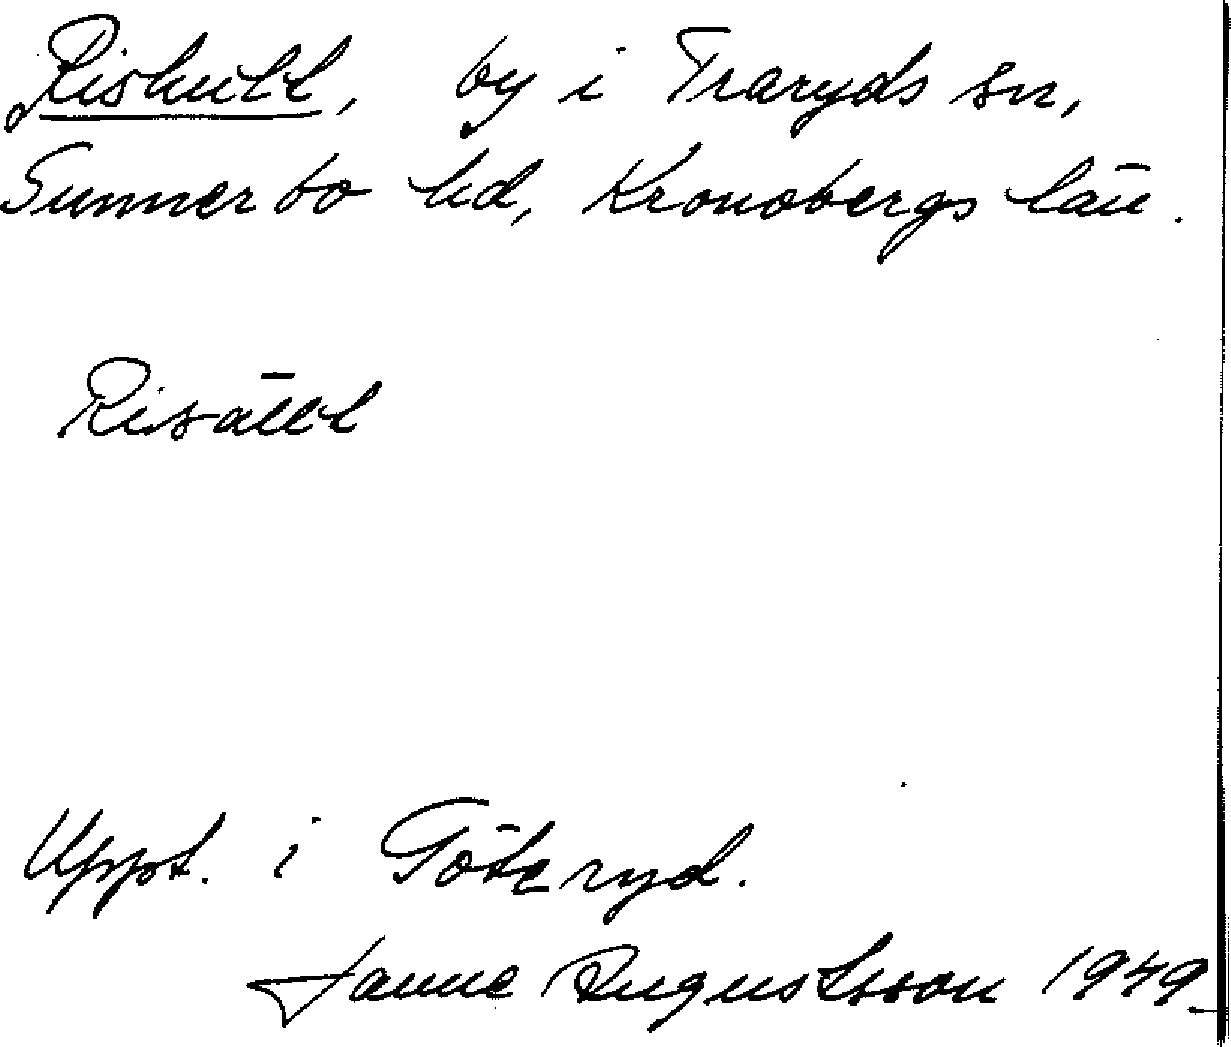 Rishult, by i Traryds sn,
Sunnerbo hd, Kronobergs län.
Uppt. i Göteryd.
Janne Augustsson 1949